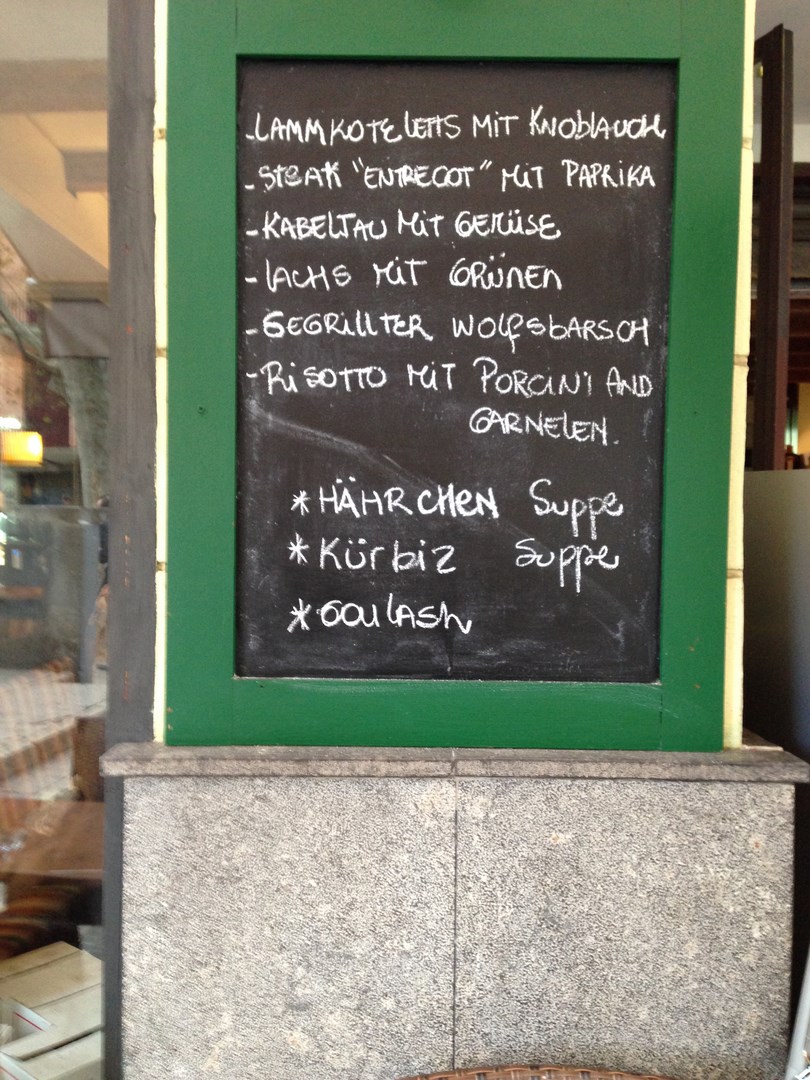 -LAMMKOTELETTS MIT KNOBLAUCH
-STEAK "ENTRECOT" MIT PAPRIKA
-KABELJAU MIT GEMÜSE
-LACHS MIT GRÜNEN
-GEGRILLTER WOLFSBARSCH
-RISOTTO MIT PORCINI AND
GARNELEN.
*HÄHRCHEN Suppe
*Kürbiz Suppe
*GOULASH